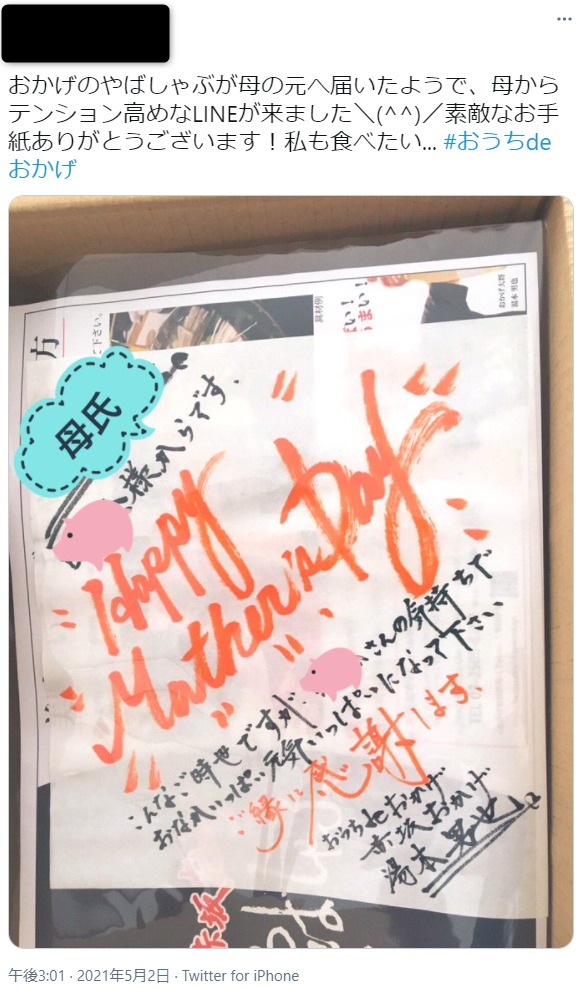 おかげのやばしゃぶが母の元へ届いたようで、母から
テンション高めなLINEが来ました＼(^^)／素敵なお手
紙ありがとうございます！私も食べたい... #おうちde
おかげ
方
に下さい。
具材例
い！
うまい！
おかげ大将
湯本 男也
母氏
様からです。
Happy
Mother's Day
こんなご時世ですが、
さんの気持ちで
おなかいっぱい 元気いっぱいになって下さい
ご縁に感謝します。
おうちdeおかげ
赤坂おかげ
湯本男也
赤坂
午後3:01 · 2021年5月2日 · Twitter for iPhone